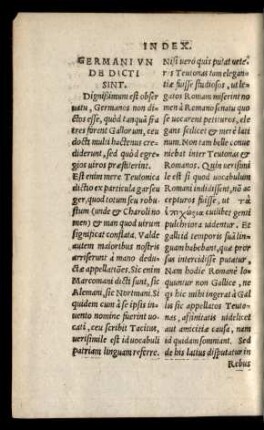 INDEX.
GERMANI VN
DE DICTI
SINT.
Dignissimum est obser
uatu, Germanos non di
ctos esse, quòd tanquã fra
tres forent Gallorum, ceu
docti multi hactenus cre
diderunt, sed quòd egre
gios uiros præstiterint.
Est enim mere Teutonica
dictio ex particula gar seu
ger, quod totum seu robu
stum (unde & Charolino
men) & man quod uirum
significat conflata. Valde
autem maioribus nostris
arriserunt à mano dedu
ctæ appellatiões. Sic enim
Marcomani dicti sunt, sic
Alemani, sic Nortmani. Si
quidem cum à se ipsis in
uento nomine fuerint uo
cati, ceu scribit Tacitus,
uerisimile est id uocabuli
patriam linguam referre.
Nisi uero quis putat uete
res Teutonas tam elegan
tiæ fuisse studiosos, ut le
gatos Romam miserint no
men à Romano senatu quo
se uocarent petituros, ele
gans scilicet & merè lati
num. Non tam belle conue
niebat inter Teutonas &
Romanos. Quin uerisimi
le est si quod uocabulum
Romani indidissent, nõ ac
cepturos fuisse, ut τὰ
cuilibet genti
pulchriora uidentur. Et
gallis id temporis suã lin
guam habebant, quæ pror
sus intercidisse putatur,
Nam hodie Romanè lo
quuntur non Gallice, ne
quis hic mihi ingerat à Gal
lis sic appellatos Teuto
nes, affinitatis uidelicet
aut amicitiæ causa, nam
id quidam somniant. Sed
de his latius disputatur in
Rebus